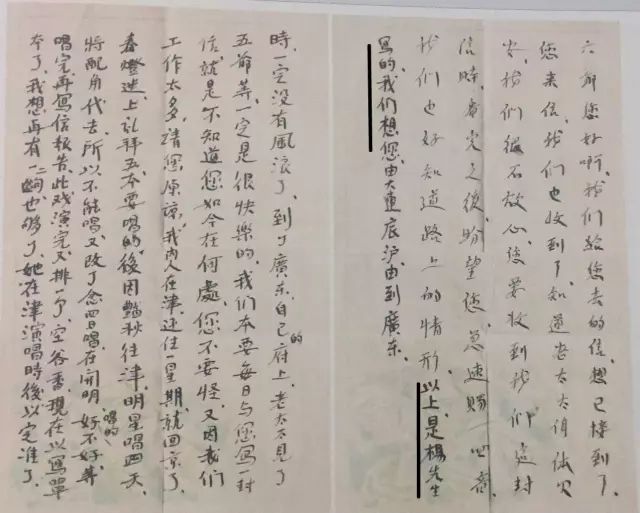 六爺您好啊、我們給您去的信、想已接到了、
您来信、我們也收到了、知道老太太
安、我們總不放心、您要收到我們這封
信時、看完之後、盼望您、急速賜一回音、
我們也好知道路上的情形、以上是楊先生
寫的、我們想您、由大連辰沪、由到廣东、
時、一定没有風浪了、到了廣东、自己的府上、老太太見了
五爺等、一定是很快樂的、我們本要每日与您寫一封
信、就是不知道您如今在何處、您不要怪、又因我們
工作太多、請您原諒、我内人在津、还住一星期、就回京了、
春燈迷上礼拜五本要唱的、後因豔秋往津、明星唱四天、
將配角代去、所以不能唱、又改了念四日唱、在開明、唱的好不好、等
唱完再寫信報告、此戏演完、又排一了、空谷香、現在以寫單
本了、我想再有二晌也够了、她在津演唱時後以定准了、